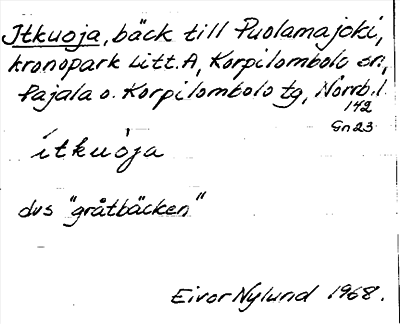 Itkuoja, bäck till Puolamajoki,
kronopark Litt. A, Korpilombolo sn,
Pajala o. Korpilombolo tg, Norrb. l.
142
Gn23
ítkuòja
dvs "gråtbäcken"
Eivor Nylund 1968.